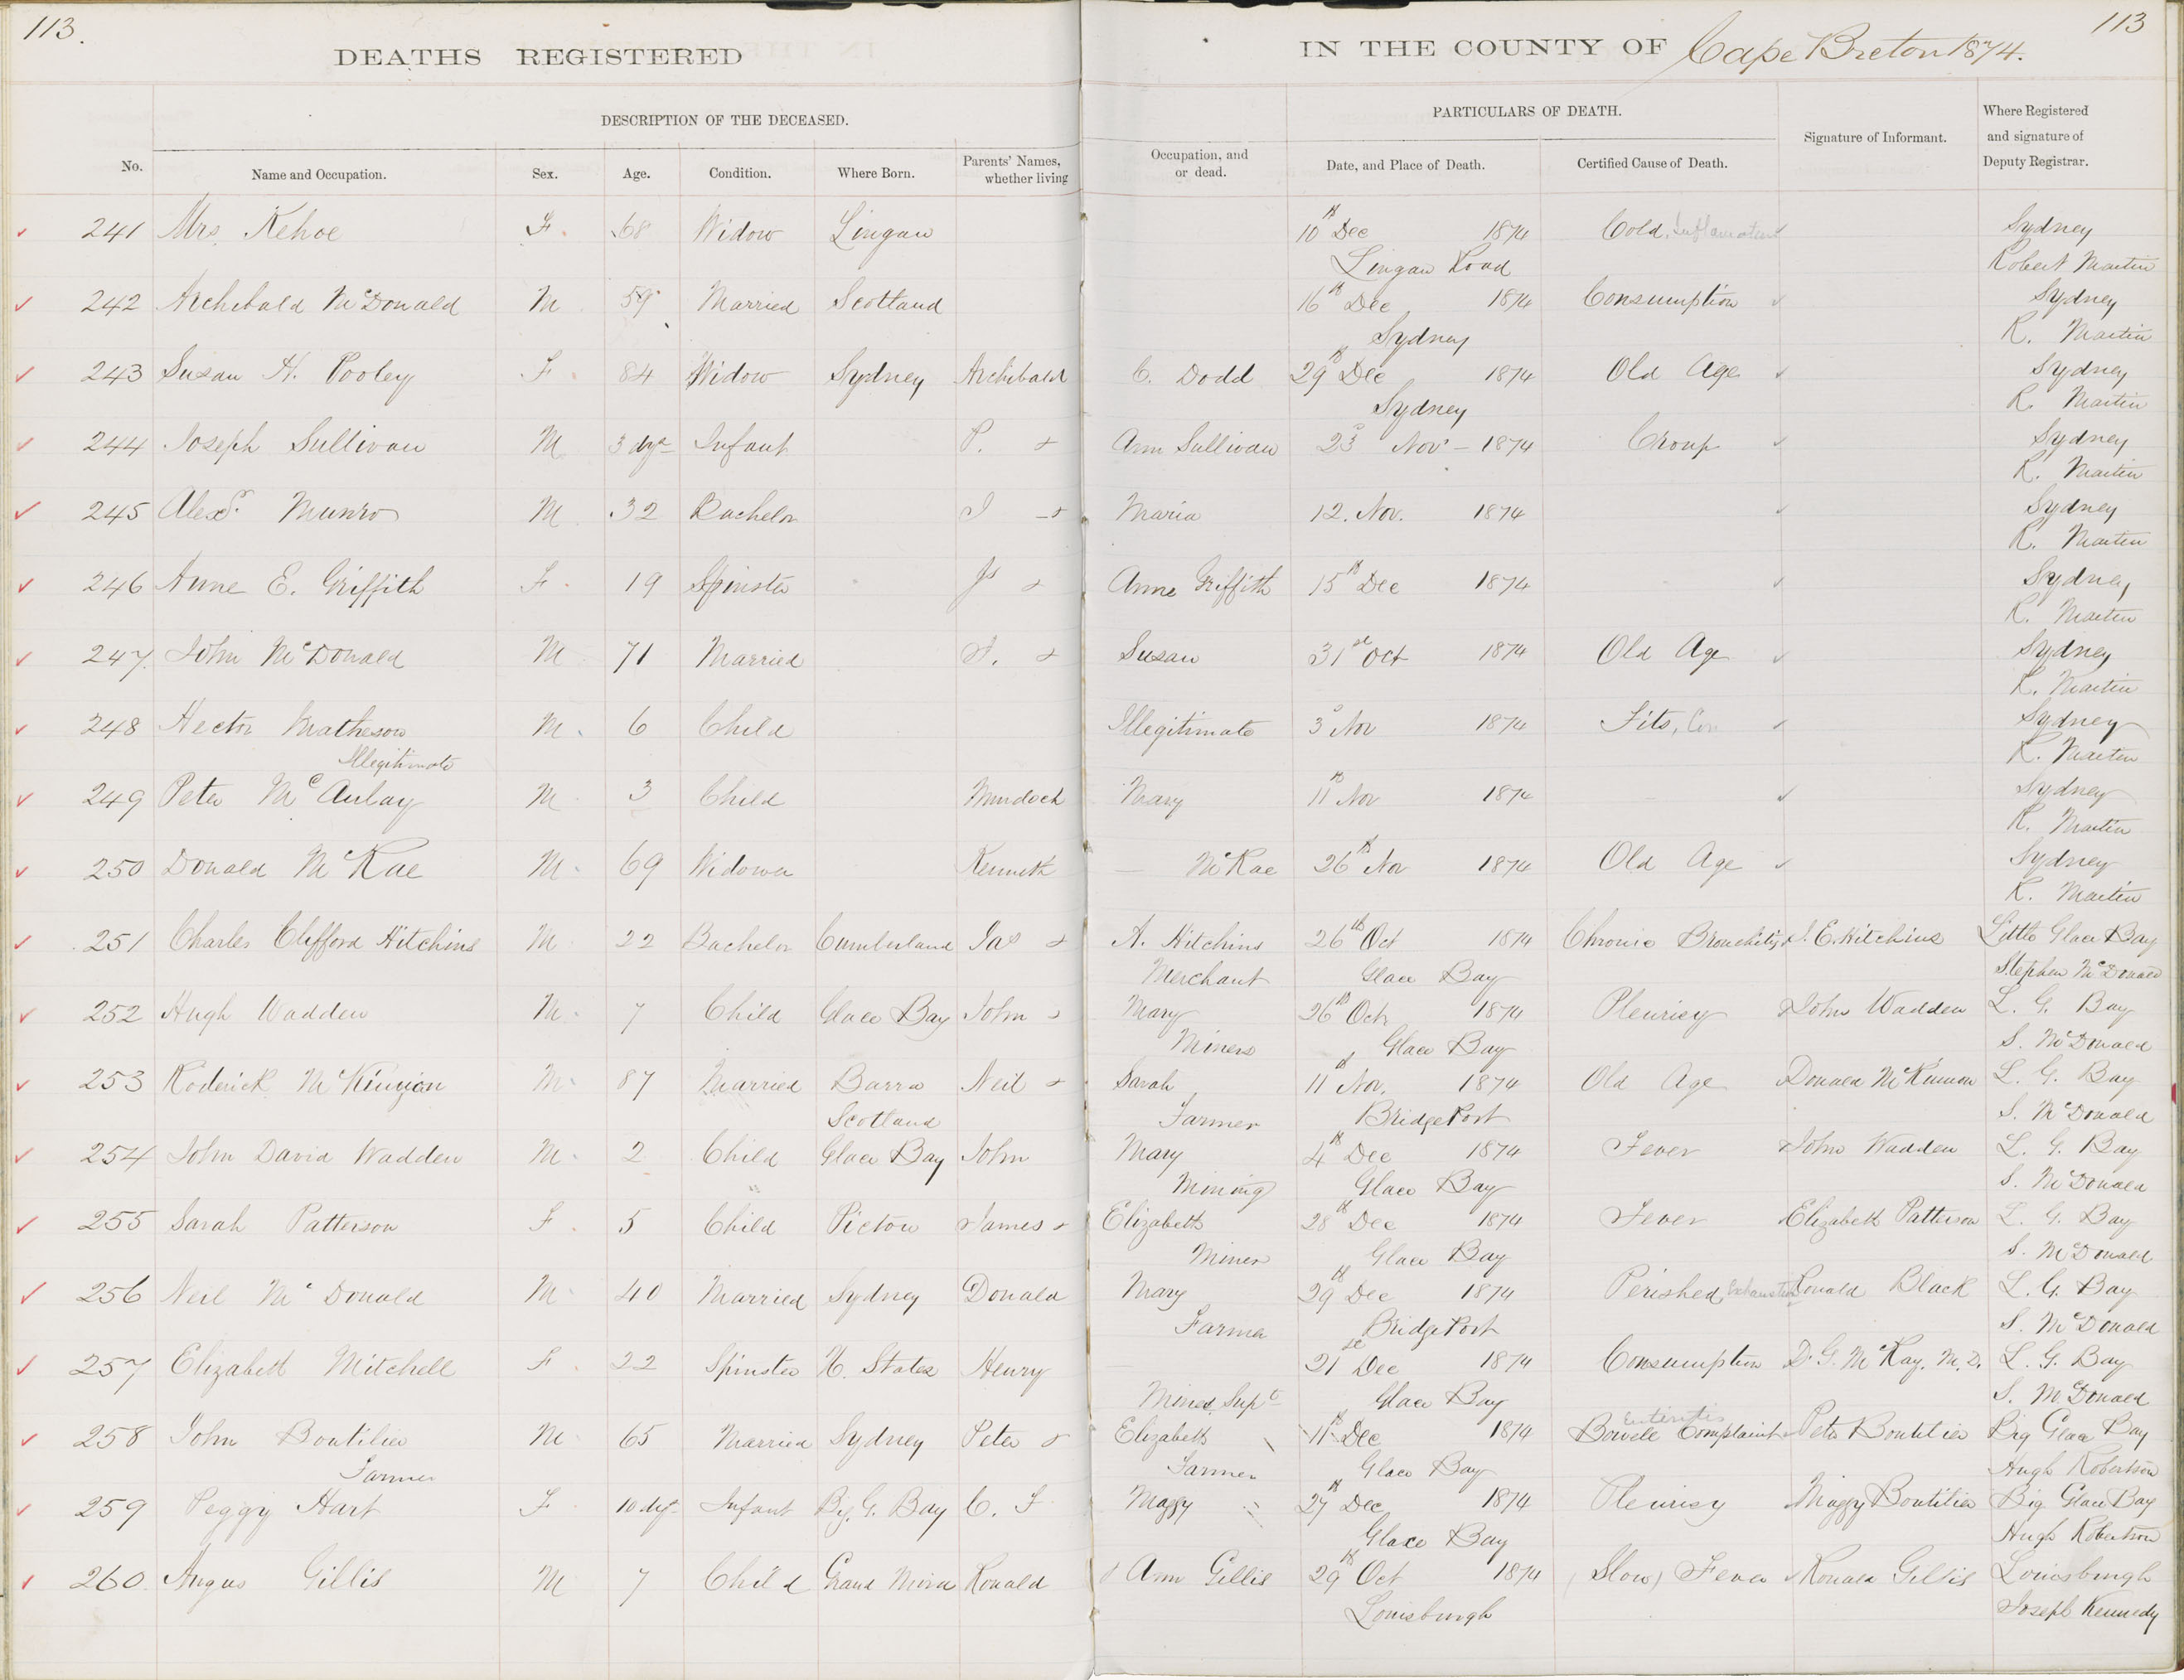 113.
113
DEATHS REGISTERED IN THE COUNTY OF Cape Breton 1874.
DESCRIPTION OF THE DECEASED.
PARTICULARS OF DEATH.
Signature of Informant.
Where Registered and signature of Deputy Registrar.
No. Name and Occupation. Sex. Age. Condition. Where Born. Parents' Names, whether living Occupation, and or dead. Date, and Place of Death. Certified Cause of Death.
241 Mrs Kehoe F. 68 Widow Lingan 10th Dec 1874 Cold, Inflamation Sydney
Lingan Road Robert Martin
242 Archibald McDonald M 59 Married Scotland 16th Dec 1874 Consumption Sydney
Sydney R. Martin
243 Susan H. Pooley F. 84 Widow Sydney Archibald C. Dodd 29th Dec 1874 Old Age Sydney
Sydney R. Martin
244 Joseph Sullivan M 3 dys Infant P. & Ann Sullivan 23d Nov - 1874 Croup Sydney
R. Martin
245 Alexr. Munro M. 32 Bachelor J & Maria 12. Nov. 1874 Sydney
R. Martin
246 Anne E. Griffith F. 19 Spinster & Anne Griffith 15th Dec 1874 Sydney
R. Martin
247. John McDonald M 71 Married & Susan 31st Oct 1874 Old Age Sydney
R. Martin
248 Hector Matheson M. 6 Child Illegitimate 3d Nov 1874 Fits, Con Sydney
Illegitimate R. Martin
249 Peter McAulay M 3 Child Murdoch Mary 11th Nov 1874 Sydney
R. Martin
250 Donald McRae M. 69 Widower Kenneth — McRae 26th Nov 1874 Old Age Sydney
R. Martin
251 Charles Clifford Hitchins M 22 Bachelor Cumberland Jas & A. Hitchins 26th Oct 1874 Chronic Bronchitis J. E. Hitchins Little Glace Bay
Merchant Glace Bay Stephen McDonald
252 Hugh Wadden M. 7 Child Glace Bay John & Mary 26th Oct 1874 Pleurisy John Wadden L. G. Bay
Miners Glace Bay S. McDonald
253 Roderick McKinnon M. 87 Married Barra Neil & Sarah 11th Nov. 1874 Old Age Donald McKinnon L. G. Bay
Scotland Farmer BridgePort S. McDonald
254 John David Wadden M. 2 Child Glace Bay John Mary 4th Dec 1874 Fever John Wadden L. G. Bay
Mining Glace Bay S. McDonald
255 Sarah Patterson F. 5 Child Pictou James & Elizabeth 28th Dec 1874 Fever Elizabeth Patterson L. G. Bay
Miner Glace Bay S. McDonald
256 Neil McDonald M. 40 Married Sydney Donald Mary 29th Dec 1874 Perished Exhaustion Ronald Black L. G. Bay
Farmer BridgePort S. McDonald
257 Elizabeth Mitchell F. 22 Spinster U. States Henry 21st Dec 1874 Consumption D. G. McKay. M.D. L. G. Bay
Mines Supt Glace Bay S. McDonald
258 John Boutilier M 65 Married Sydney Peter & Elizabeth 11th Dec 1874 Bowell Complaint Enteritis Peter Boutilier Big Glace Bay
Farmer Farmer Glace Bay Hugh Robertson
259 Peggy Hart F 10 dys Infant By. G. Bay C. F. Maggy 27th Dec 1874 Pleurisy Maggy Boutilier Big Glace Bay
Glace Bay Hugh Robertson
260. Angus Gillis M 7 Child Grand Mira Ronald & Ann Gillis 29th Oct 1874 Slow Fever Ronald Gillis Louisburgh
Louisburgh Joseph Kennedy